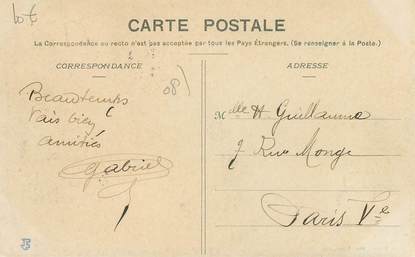 10 €
CARTE POSTALE
La Correspondance au recto n'est pas acceptée par tous les Pays Étrangers. (Se renseigner à la Poste.)
CORRESPONDANCE
ADRESSE
08
Beau temps
Vais bien
amitiés
Gabriel
Mlle H Guillaume
7 Rue Monge
Paris Ve